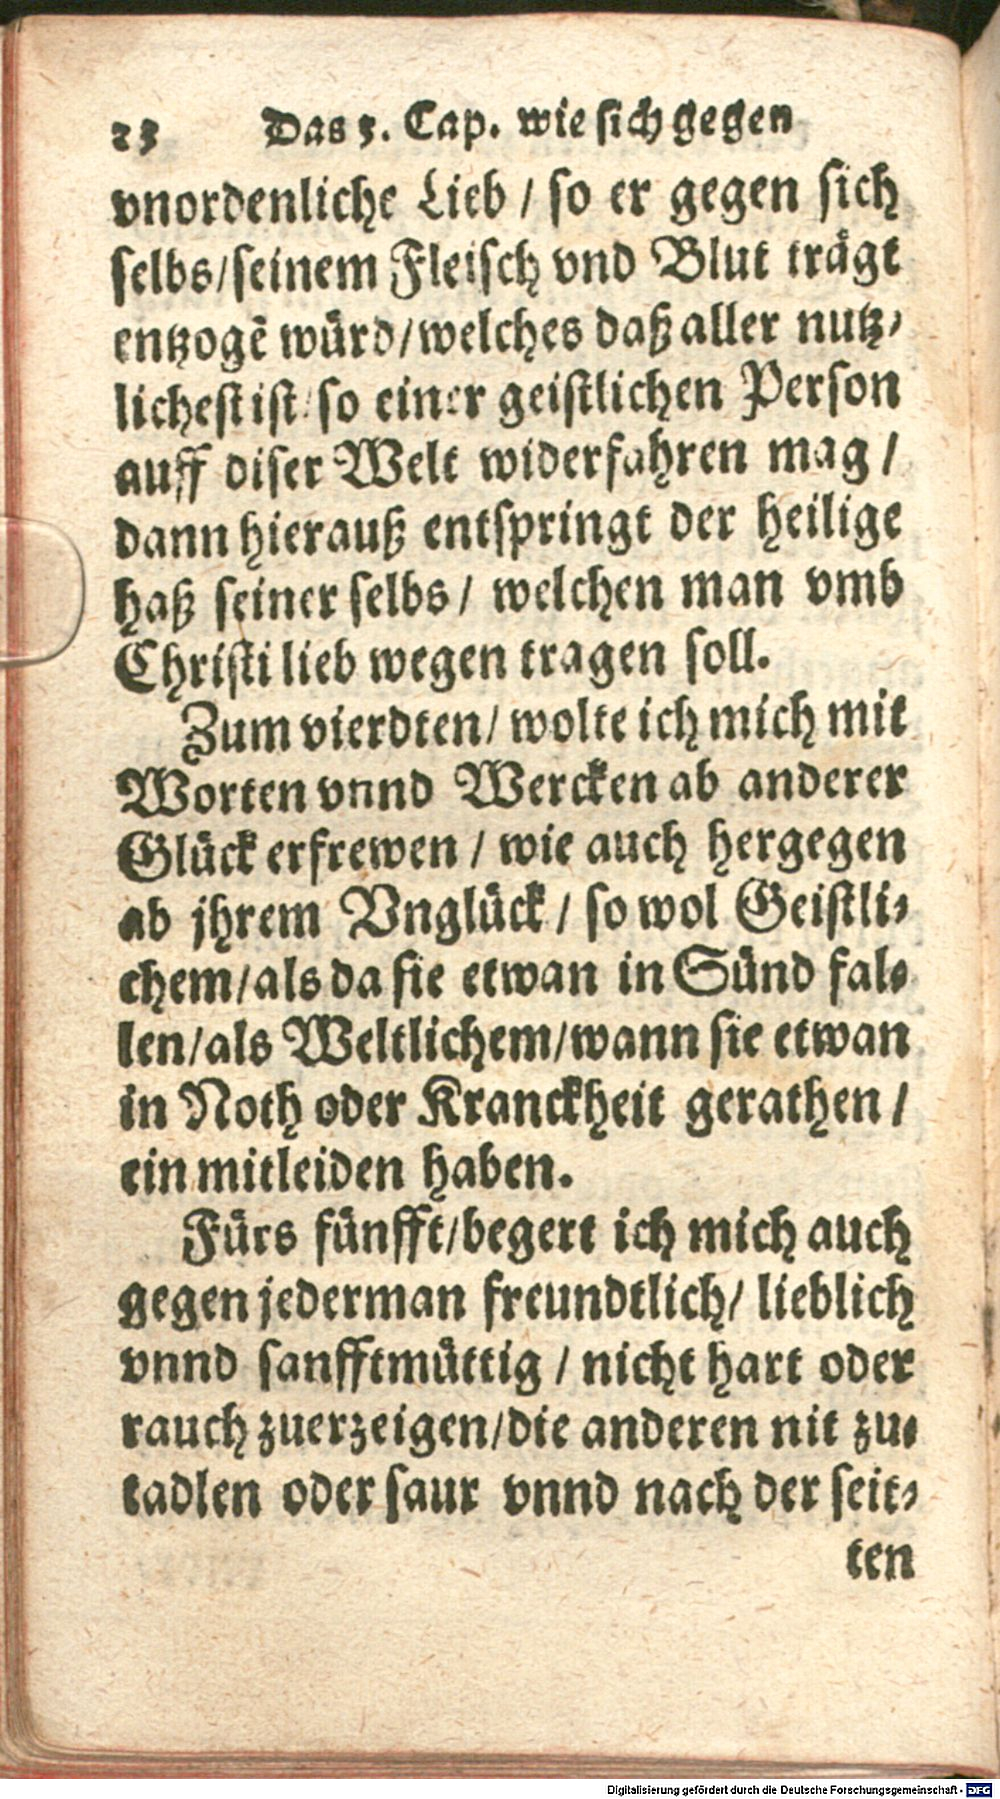 23 Das 3. Cap. wie sich gegen
vnordenliche Lieb / so er gegen sich
selbs/seinem Fleisch vnd Blut trägt
entzogẽ würd/welches daß aller nutz-
lichest ist/so einer geistlichen Person
auff diser Welt widerfahren mag /
dann hierauß entspringt der heilige
haß seiner selbs / welchen man vmb
Christi lieb wegen tragen soll.
Zum vierdten/ wolte ich mich mit
Worten vnnd Wercken ab anderer
Glück erfrewen / wie auch hergegen
ab jhrem Vnglück / so wol Geistli-
chem/als da sie etwan in Sünd fal-
len/als Weltlichem/wann sie etwan
in Noth oder Kranckheit gerathen /
ein mitleiden haben.
Fürs fünfft/begert ich mich auch
gegen jederman freundtlich/ lieblich
vnnd sanfftmüttig / nicht hart oder
rauch zuerzeigen/die anderen nit zu-
tadlen oder saur vnnd nach der seit-
ten
Digitalisierung gefördert durch die Deutsche Forschungsgemeinschaft - DFG